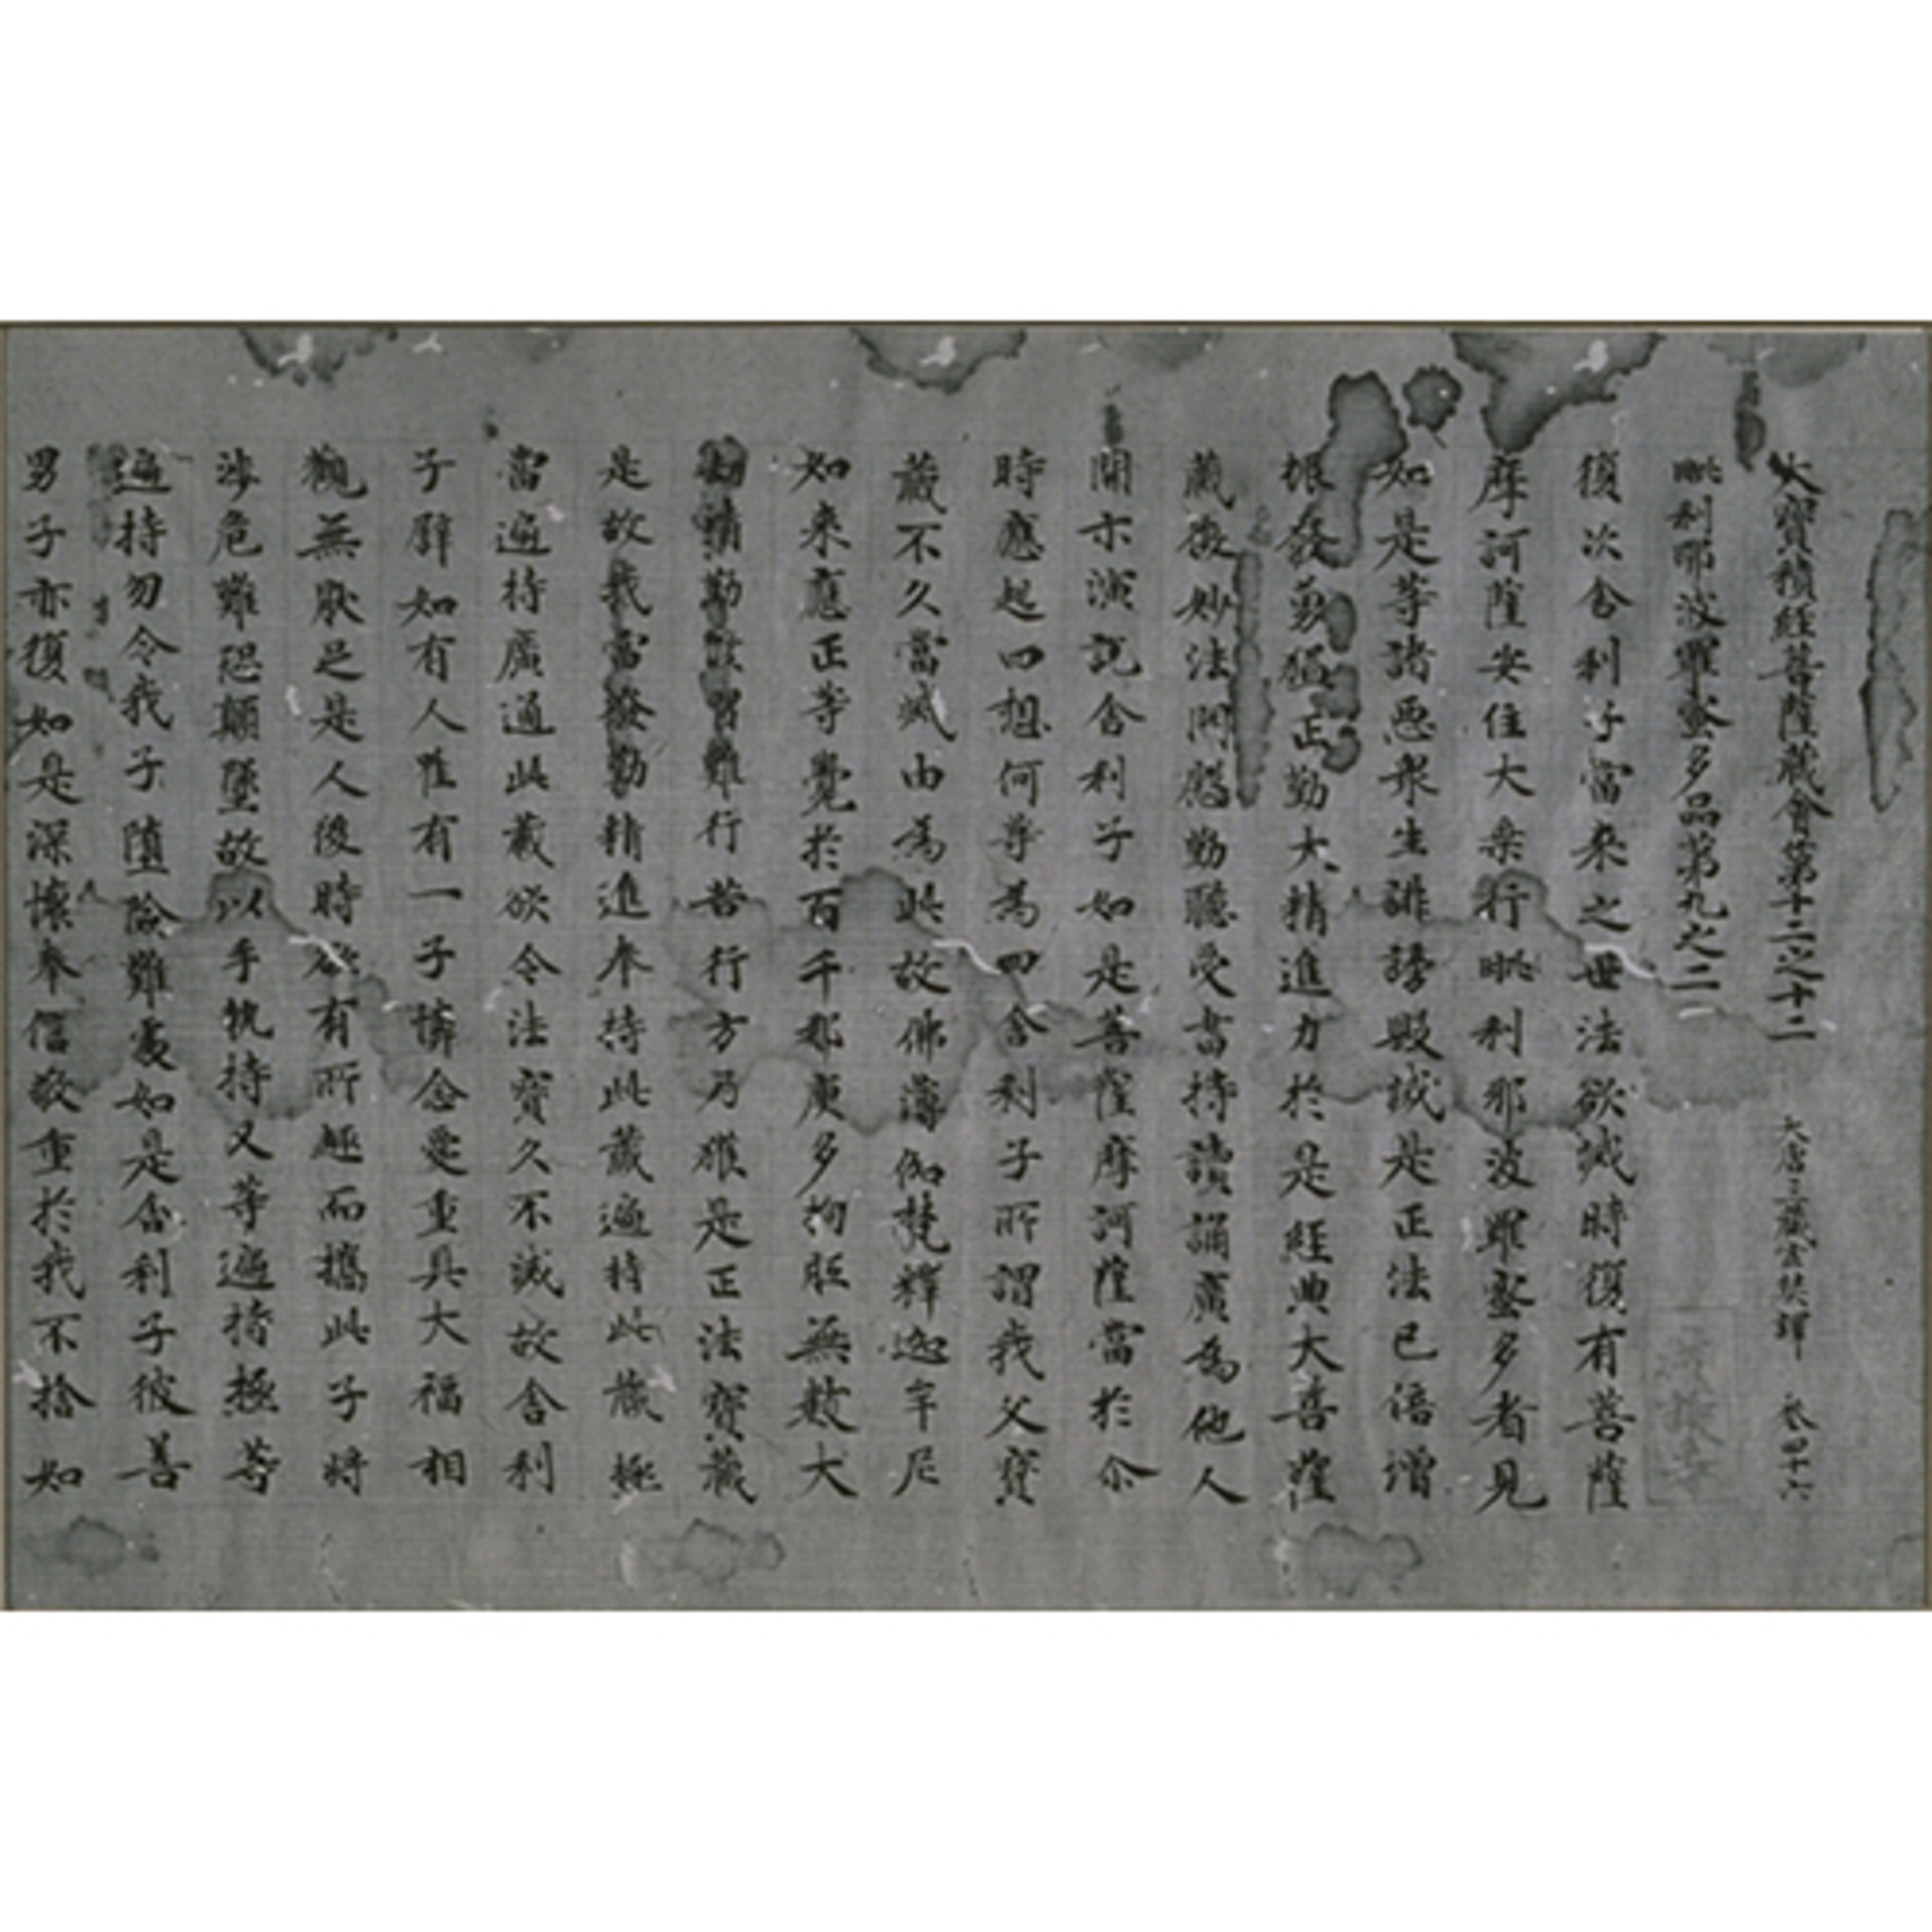 大寶積經菩薩藏會第十二之十二 大唐三藏玄奘譯 卷四十六
毗利耶波羅蜜多品第九之二
復次舍利子當來之世法欲滅時復有菩薩
摩訶薩安住大乘行毗利耶波羅蜜多者見
如是等諸惡衆生誹謗毀滅是正法已倍增
振發勇猛正勤大精進力於是經典大菩薩
藏微妙法門慇懃聽受書持讀誦廣為他人
開示演說舍利子如是菩薩摩訶薩當於尒
時應起四想何等為四舍利子所謂我父寶
藏不久當滅由為此故佛薄伽梵釋迦牟尼
如來應正等覺於百千那庾多拘胝無數大
劫精勤修習難行苦行方乃獲是正法寶藏
是故我當發勤精進奉持此藏遍持此藏極
當遍持廣通此藏欲令法寶久不滅故舍利
子譬如有人唯有一子憐念愛重具大福相
觀無猒足是人後時欲有所趣而攜此子將
涉危難恐顛墜故以手執持又等遍持極等
遍持勿令我子墮險難處如是舍利子彼善
男子亦復如是深懷奉信敬重於我不捨如